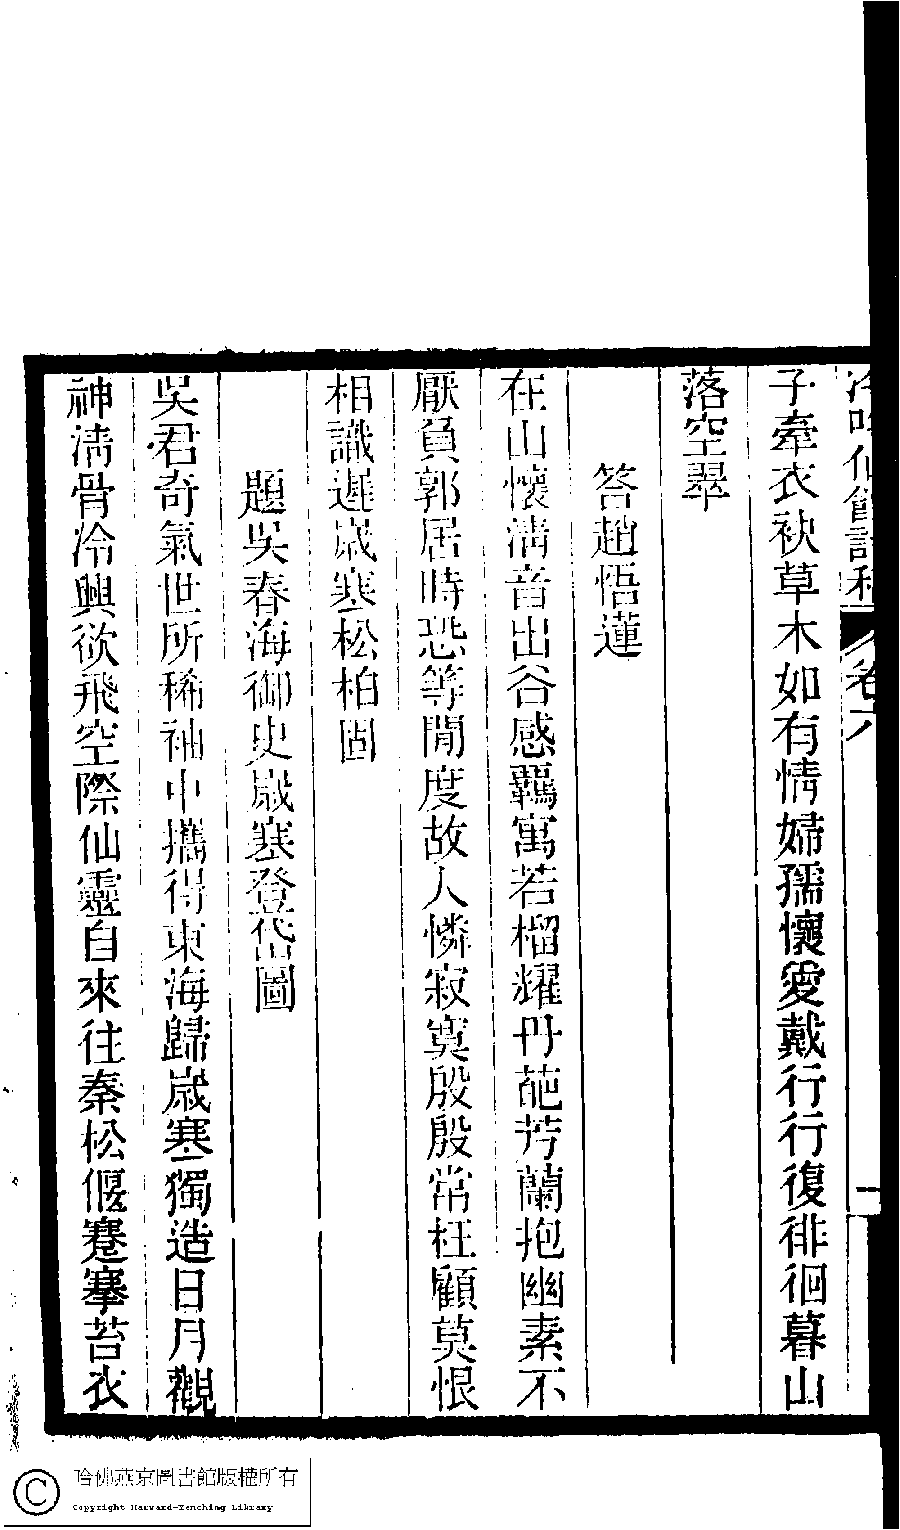 冷吟仙館詩稿 卷六 一
子牽衣袂草木如有情婦孺懷愛戴行行復徘徊暮山
落空翠
答趙悟蓮
在山懷清音出谷感羈寓若榴耀丹葩芳蘭抱幽素不
厭負郭居時恐等閒度故人憐寂寞殷殷常枉顧莫恨
相識遲歲寒松柏固
題吳春海御史歲寒登岱圖
吳君奇氣世所稀袖中攜得東海歸歲寒獨造日月觀
神清骨冷興欲飛空際仙靈自來往秦松偃蹇搴苔衣
©哈佛燕京圖書館版權所有
Copyright Harvard-Yenching Library